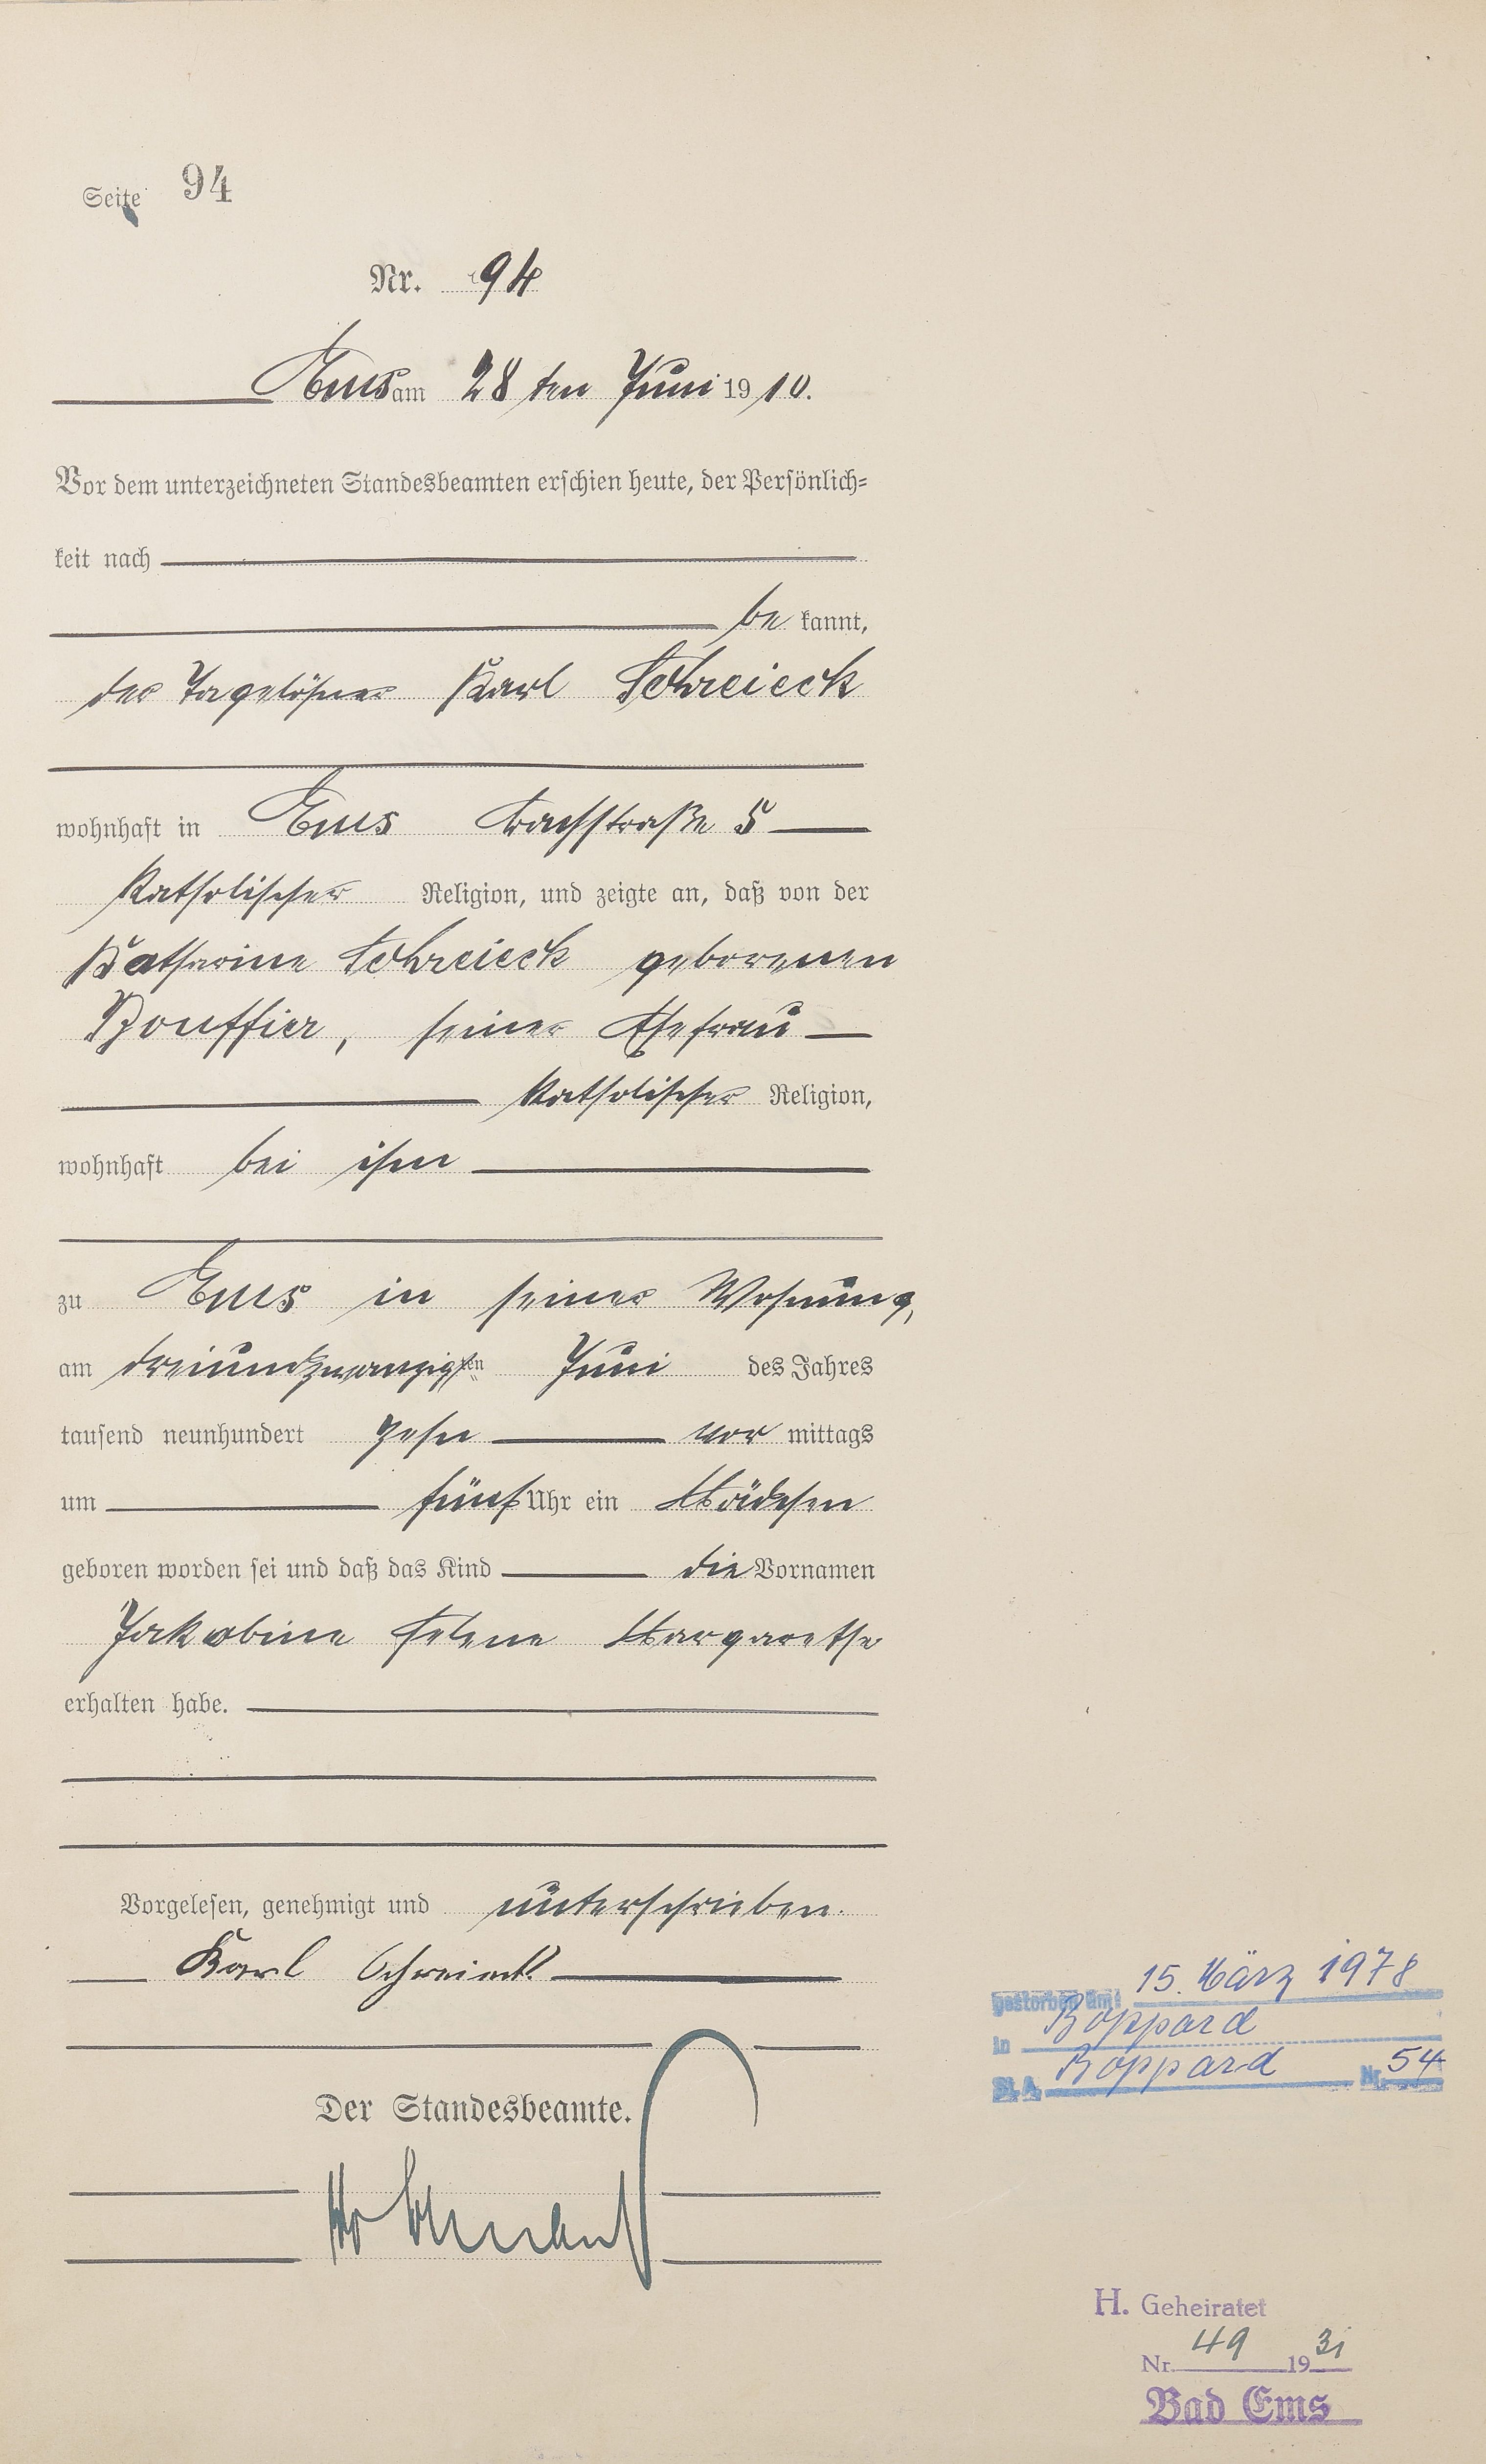 Seite 94
Nr. 94
Ems am 28 ten Juni 1910.
Vor dem unterzeichneten Standesbeamten erschien heute, der Persönlich=
keit nach
be kannt,
der Tagelöhner Karl Schreieck
wohnhaft in Ems Bachstraße 5
katholischer Religion, und zeigte an, daß von der
Katharine Schreieck geborenen
Bouffier, seiner Ehefrau
katholischer Religion,
wohnhaft bei ihm
zu Ems in seiner Wohnung,
am dreiundzwanzigsten Juni des Jahres
tausend neunhundert zehn vor mittags
um fünf Uhr ein Mädchen
geboren worden sei und daß das Kind die Vornamen
Jakobine Helene Margarethe
erhalten habe.
Vorgelesen, genehmigt und unterschrieben.
Karl Schreieck
Der Standesbeamte.
gestorben am: 15. März 1978
in Boppard
St. A. Boppard Nr. 54
H. Geheiratet
Nr. 49 1931
Bad Ems